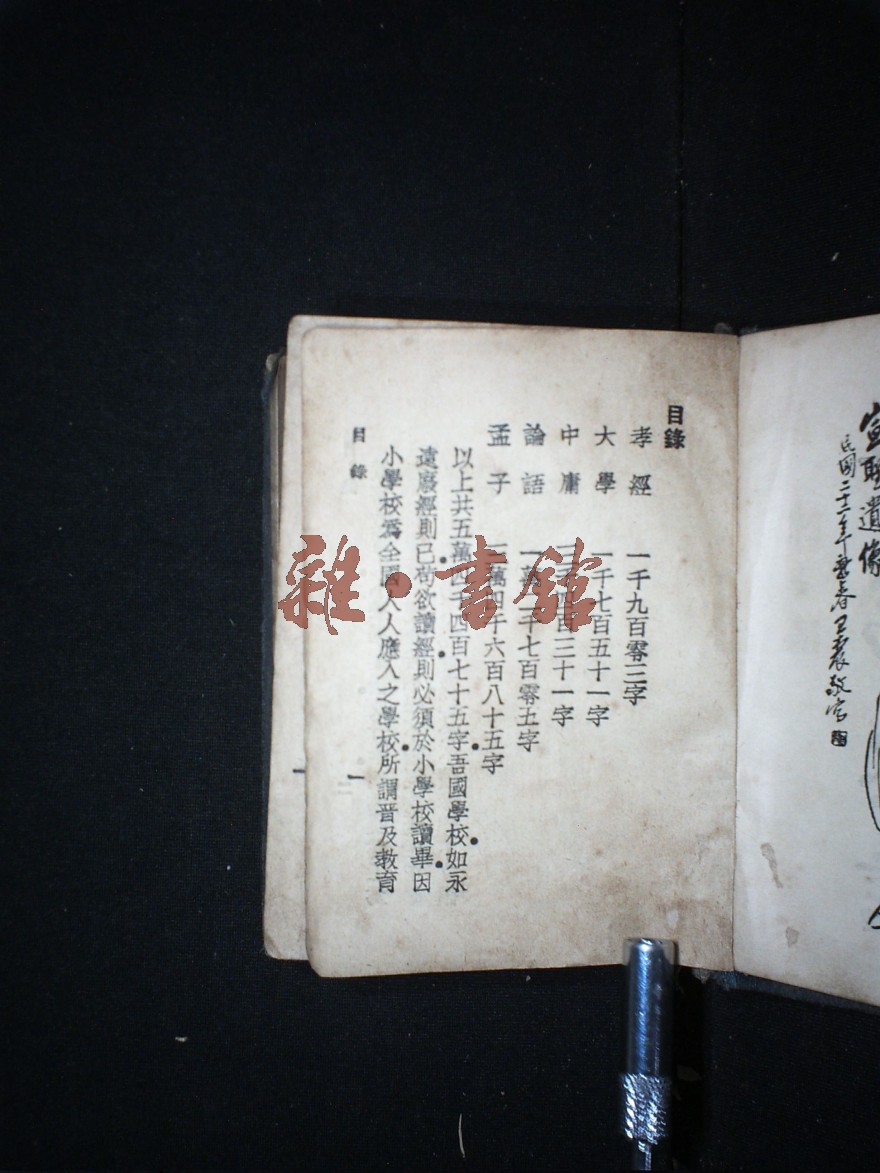 宣聖遺像
民國二十二年孟春王震敬寫
目錄
孝經 一千九百零三字
大學 一千七百五十一字
中庸 三千百三十一字
論語 一萬二千七百零五字
孟子 三萬四千六百八十五字
以上共五萬四千四百七十五字吾國學校如永
遠廢經則已苟欲讀經則必須於小學校讀畢因
小學校爲全國人人應入之學校所謂普及教育
目錄 一
雜·書館